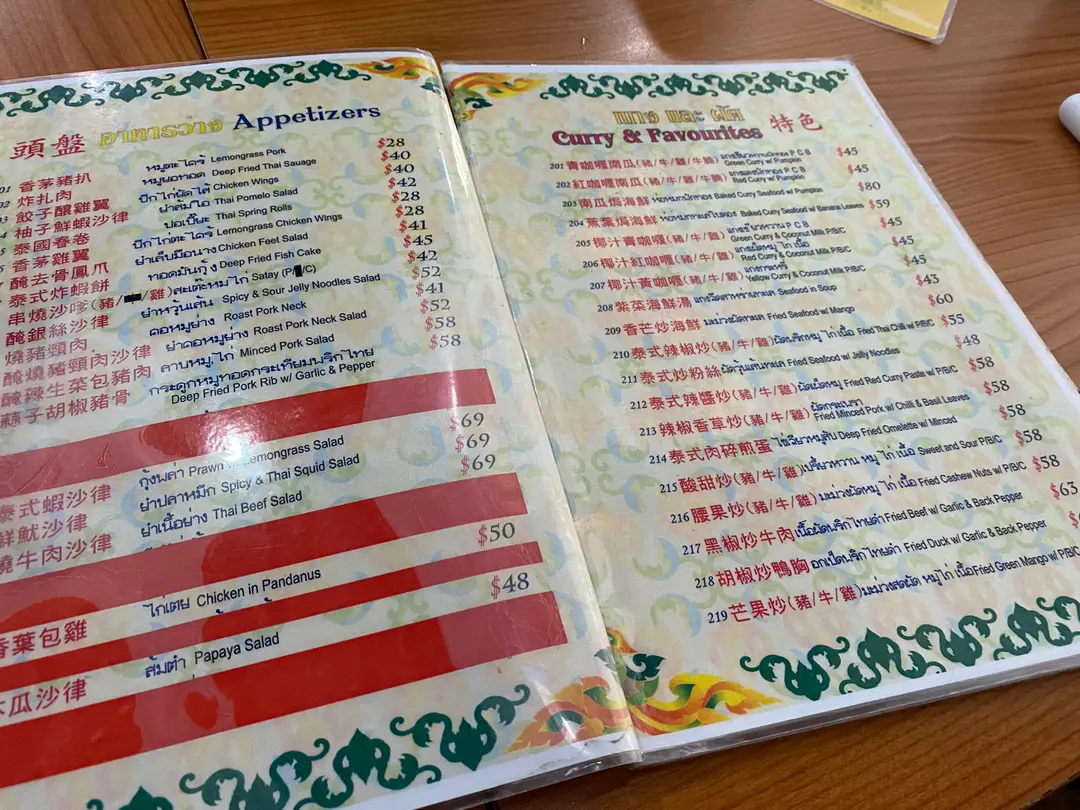 頭盤 อาหารว่าง Appetizers
01 香茅豬扒 หมูตะไคร้ Lemongrass Pork $28
02 炸扎肉 หมูยอทอด Deep Fried Thai Sauage $40
03 餃子釀雞翼 ปีกไก่ยัดไส้ Chicken Wings $40
柚子鮮蝦沙律 ยำส้มโอ Thai Pomelo Salad $42
泰國春卷 ปอเปี๊ยะ Thai Spring Rolls $28
香茅雞翼 ปีกไก่ตะไคร้ Lemongrass Chicken Wings $28
醃去骨鳳爪 ยำเล็บมือนาง Chicken Feet Salad $41
泰式炸蝦餅 ทอดมันกุ้ง Deep Fried Fish Cake $45
串燒沙嗲(豬/ /雞) สะเต๊ะหมู ไก่ Satay (P/ /C) $42
醃銀絲沙律 ยำหวุ้นเส้น Spicy & Sour Jelly Noodles Salad $52
燒豬頸肉 คอหมูย่าง Roast Pork Neck $41
醃燒豬頸肉沙律 ยำคอหมูย่าง Roast Pork Neck Salad $52
醃辣生菜包豬肉 ลาบหมู, ไก่ Minced Pork Salad $58
蒜子胡椒豬骨 กระดูกหมูทอดกระเทียมพริกไทย $58
Deep Fried Pork Rib w/ Garlic & Pepper
泰式蝦沙律 กุ้งพล่า Prawn w/ Lemongrass Salad $69
鮮魷沙律 ยำปลาหมึก Spicy & Thai Squid Salad $69
燒牛肉沙律 ยำเนื้อย่าง Thai Beef Salad $69
香葉包雞 ไก่เตย Chicken in Pandanus $50
木瓜沙律 ส้มตำ Papaya Salad $48
แกง และ ผัด
Curry & Favourites 特色
201 青咖喱南瓜(豬/牛/雞/牛腩) แกงเขียวหวานฟักทอง P C B $45
Green Curry w/ Pumpkin
202 紅咖喱南瓜(豬/牛/雞/牛腩) แกงแดงฟักทอง P C B $45
Red Curry w/ Pumpkin
203 南瓜焗海鮮 ห่อหมกทะเลฟักทอง Baked Curry Seafood w/ Pumpkin $80
204 蕉葉焗海鮮 ห่อหมกทะเลใบตอง Baked Curry Seafood w/ Banana Leaves $59
205 椰汁青咖喱(豬/牛/雞) แกงเขียวหวาน P C B $45
Green Curry & Coconut Milk P/B/C
206 椰汁紅咖喱(豬/牛/雞) แกงเผ็ดหมู ไก่ เนื้อ $45
Red Curry & Coconut Milk P/B/C
207 椰汁黃咖喱(豬/牛/雞) แกงกะหรี่ $45
Yellow Curry & Coconut Milk P/B/C
208 紫菜海鮮湯 แกงจืดสาหร่ายทะเล Seafood in Soup $43
209 香芒炒海鮮 มะม่วงผัดทะเล Fried Seafood w/ Mango $60
210 泰式辣椒炒(豬/牛/雞) ผัดพริกหมู ไก่ เนื้อ Fried Thai Chilli w/ P/B/C $55
211 泰式炒粉絲 ผัดวุ้นเส้นทะเล Fried Seafood w/ Jelly Noodles $48
212 泰式辣醬炒(豬/牛/雞) ผัดเผ็ดหมู Fried Red Curry Paste w/ P/B/C $58
213 辣椒香草炒(豬/牛/雞) ผัดกระเพรา $58
Fried Minced Pork w/ Chilli & Basil Leaves
214 泰式肉碎煎蛋 ไข่เจียวหมูสับ Deep Fried Omelette w/ Minced $58
215 酸甜炒(豬/牛/雞) เปรี้ยวหวาน หมู ไก่ เนื้อ Sweet and Sour P/B/C $58
216 腰果炒(豬/牛/雞) มะม่วงผัดหมู ไก่ เนื้อ Fried Cashew Nuts w/ P/B/C $58
217 黑椒炒牛肉 เนื้อผัดพริกไทยดำ Fried Beef w/ Garlic & Back Pepper $63
218 胡椒炒鴨胸 อกเป็ดพริกไทยดำ Fried Duck w/ Garlic & Back Pepper $
219 芒果炒(豬/牛/雞) มะม่วงสดผัด หมู ไก่ เนื้อ Fried Green Mango w/ P/B/C